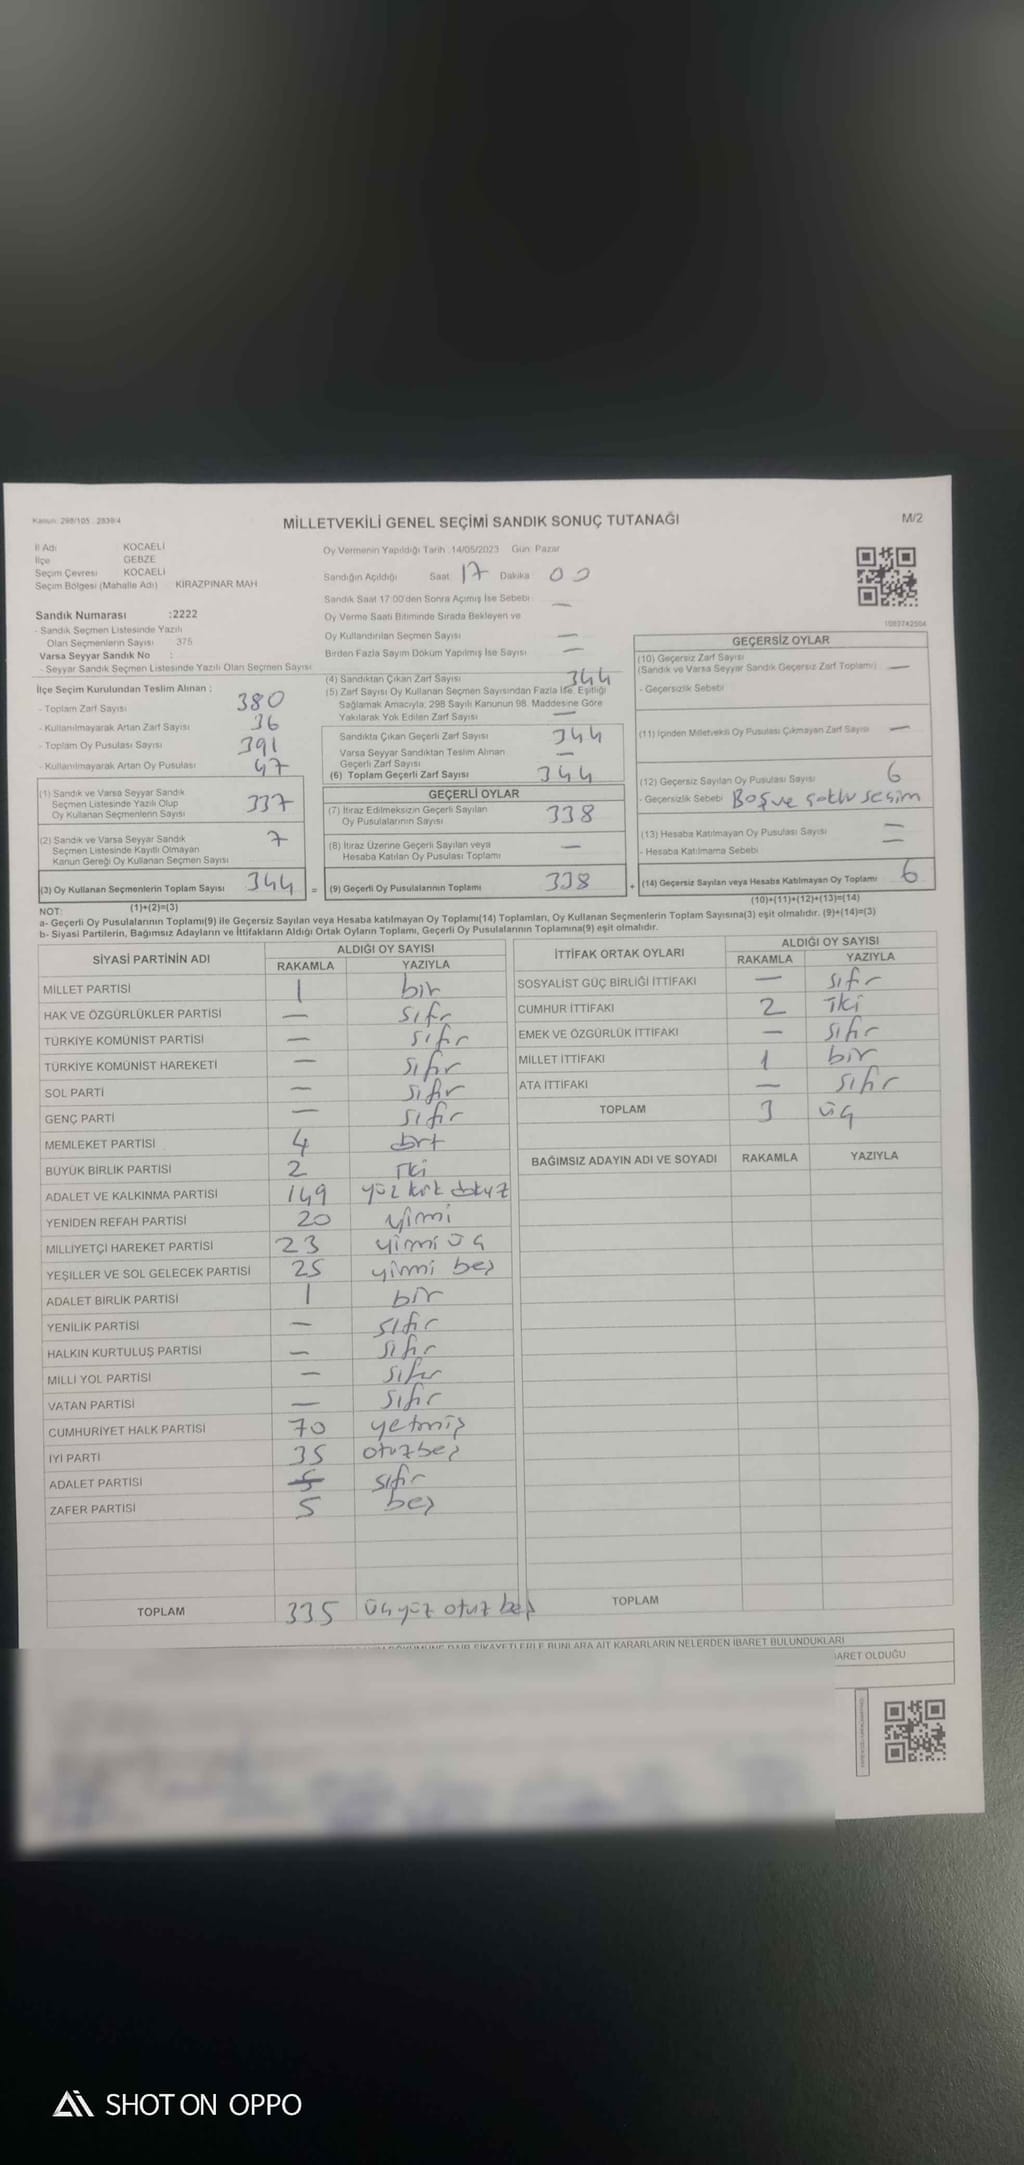 Kanun: 298/105 2839/4
MİLLETVEKİLİ GENEL SEÇİMİ SANDIK SONUÇ TUTANAĞI
M/2
İl Adı KOCAELİ
İlçe GEBZE
Seçim Çevresi KOCAELİ
Seçim Bölgesi (Mahalle Adı) KİRAZPINAR MAH
Sandık Numarası :2222
- Sandık Seçmen Listesinde Yazılı
Olan Seçmenlerin Sayısı 375
Varsa Seyyar Sandık No :
- Seyyar Sandık Seçmen Listesinde Yazılı Olan Seçmen Sayısı
Oy Vermenin Yapıldığı Tarih :14/05/2023 Gün: Pazar
Sandığın Açıldığı Saat: 17 Dakika: 00
Sandık Saat 17:00'den Sonra Açılmış İse Sebebi: —
Oy Verme Saati Bitiminde Sırada Bekleyen ve
Oy Kullandırılan Seçmen Sayısı —
Birden Fazla Sayım Döküm Yapılmış İse Sayısı —
1083742504
İlçe Seçim Kurulundan Teslim Alınan ;
- Toplam Zarf Sayısı 380
- Kullanılmayarak Artan Zarf Sayısı 36
- Toplam Oy Pusulası Sayısı 391
- Kullanılmayarak Artan Oy Pusulası 47
(1) Sandık ve Varsa Seyyar Sandık
Seçmen Listesinde Yazılı Olup
Oy Kullanan Seçmenlerin Sayısı 337
(2) Sandık ve Varsa Seyyar Sandık
Seçmen Listesinde Kayıtlı Olmayan
Kanun Gereği Oy Kullanan Seçmen Sayısı 7
(3) Oy Kullanan Seçmenlerin Toplam Sayısı 344 =
(4) Sandıktan Çıkan Zarf Sayısı 344
(5) Zarf Sayısı Oy Kullanan Seçmen Sayısından Fazla İse, Eşitliği
Sağlamak Amacıyla, 298 Sayılı Kanunun 98. Maddesine Göre
Yakılarak Yok Edilen Zarf Sayısı —
Sandıkta Çıkan Geçerli Zarf Sayısı 344
Varsa Seyyar Sandıktan Teslim Alınan
Geçerli Zarf Sayısı —
(6) Toplam Geçerli Zarf Sayısı 344
GEÇERLİ OYLAR
(7) İtiraz Edilmeksizin Geçerli Sayılan
Oy Pusulalarının Sayısı 338
(8) İtiraz Üzerine Geçerli Sayılan veya
Hesaba Katılan Oy Pusulası Toplamı —
(9) Geçerli Oy Pusulalarının Toplamı 338 +
GEÇERSİZ OYLAR
(10) Geçersiz Zarf Sayısı
(Sandık ve Varsa Seyyar Sandık Geçersiz Zarf Toplamı) —
- Geçersizlik Sebebi
(11) İçinden Milletvekili Oy Pusulası Çıkmayan Zarf Sayısı —
(12) Geçersiz Sayılan Oy Pusulası Sayısı 6
- Geçersizlik Sebebi Boş ve çoklu seçim
(13) Hesaba Katılmayan Oy Pusulası Sayısı —
- Hesaba Katılmama Sebebi —
(14) Geçersiz Sayılan veya Hesaba Katılmayan Oy Toplamı 6
(10)+(11)+(12)+(13)=(14)
NOT: (1)+(2)=(3)
a- Geçerli Oy Pusulalarının Toplamı(9) ile Geçersiz Sayılan veya Hesaba katılmayan Oy Toplamı(14) Toplamları, Oy Kullanan Seçmenlerin Toplam Sayısına(3) eşit olmalıdır. (9)+(14)=(3)
b- Siyasi Partilerin, Bağımsız Adayların ve İttifakların Aldığı Ortak Oyların Toplamı, Geçerli Oy Pusulalarının Toplamına(9) eşit olmalıdır.
SİYASİ PARTİNİN ADI ALDIĞI OY SAYISI
RAKAMLA YAZIYLA
MİLLET PARTİSİ 1 bir
HAK VE ÖZGÜRLÜKLER PARTİSİ — sıfır
TÜRKİYE KOMÜNİST PARTİSİ — sıfır
TÜRKİYE KOMÜNİST HAREKETİ — sıfır
SOL PARTİ — sıfır
GENÇ PARTİ — sıfır
MEMLEKET PARTİSİ 4 dört
BÜYÜK BİRLİK PARTİSİ 2 iki
ADALET VE KALKINMA PARTİSİ 149 yüz kırk dokuz
YENİDEN REFAH PARTİSİ 20 yirmi
MİLLİYETÇİ HAREKET PARTİSİ 23 yirmi üç
YEŞİLLER VE SOL GELECEK PARTİSİ 25 yirmi beş
ADALET BİRLİK PARTİSİ 1 bir
YENİLİK PARTİSİ — sıfır
HALKIN KURTULUŞ PARTİSİ — sıfır
MİLLİ YOL PARTİSİ — sıfır
VATAN PARTİSİ — sıfır
CUMHURİYET HALK PARTİSİ 70 yetmiş
İYİ PARTİ 35 otuzbeş
ADALET PARTİSİ 5 sıfır
ZAFER PARTİSİ 5 beş
TOPLAM 335 üçyüz otuz beş
İTTİFAK ORTAK OYLARI ALDIĞI OY SAYISI
RAKAMLA YAZIYLA
SOSYALİST GÜÇ BİRLİĞİ İTTİFAKI — sıfır
CUMHUR İTTİFAKI 2 iki
EMEK VE ÖZGÜRLÜK İTTİFAKI — sıfır
MİLLET İTTİFAKI 1 bir
ATA İTTİFAKI — sıfır
TOPLAM 3 üç
BAĞIMSIZ ADAYIN ADI VE SOYADI RAKAMLA YAZIYLA
TOPLAM
DÖKÜMÜNE DAİR ŞİKAYETLERLE BUNLARA AİT KARARLARIN NELERDEN İBARET BULUNDUKLARI
İBARET OLDUĞU
SHOT ON OPPO